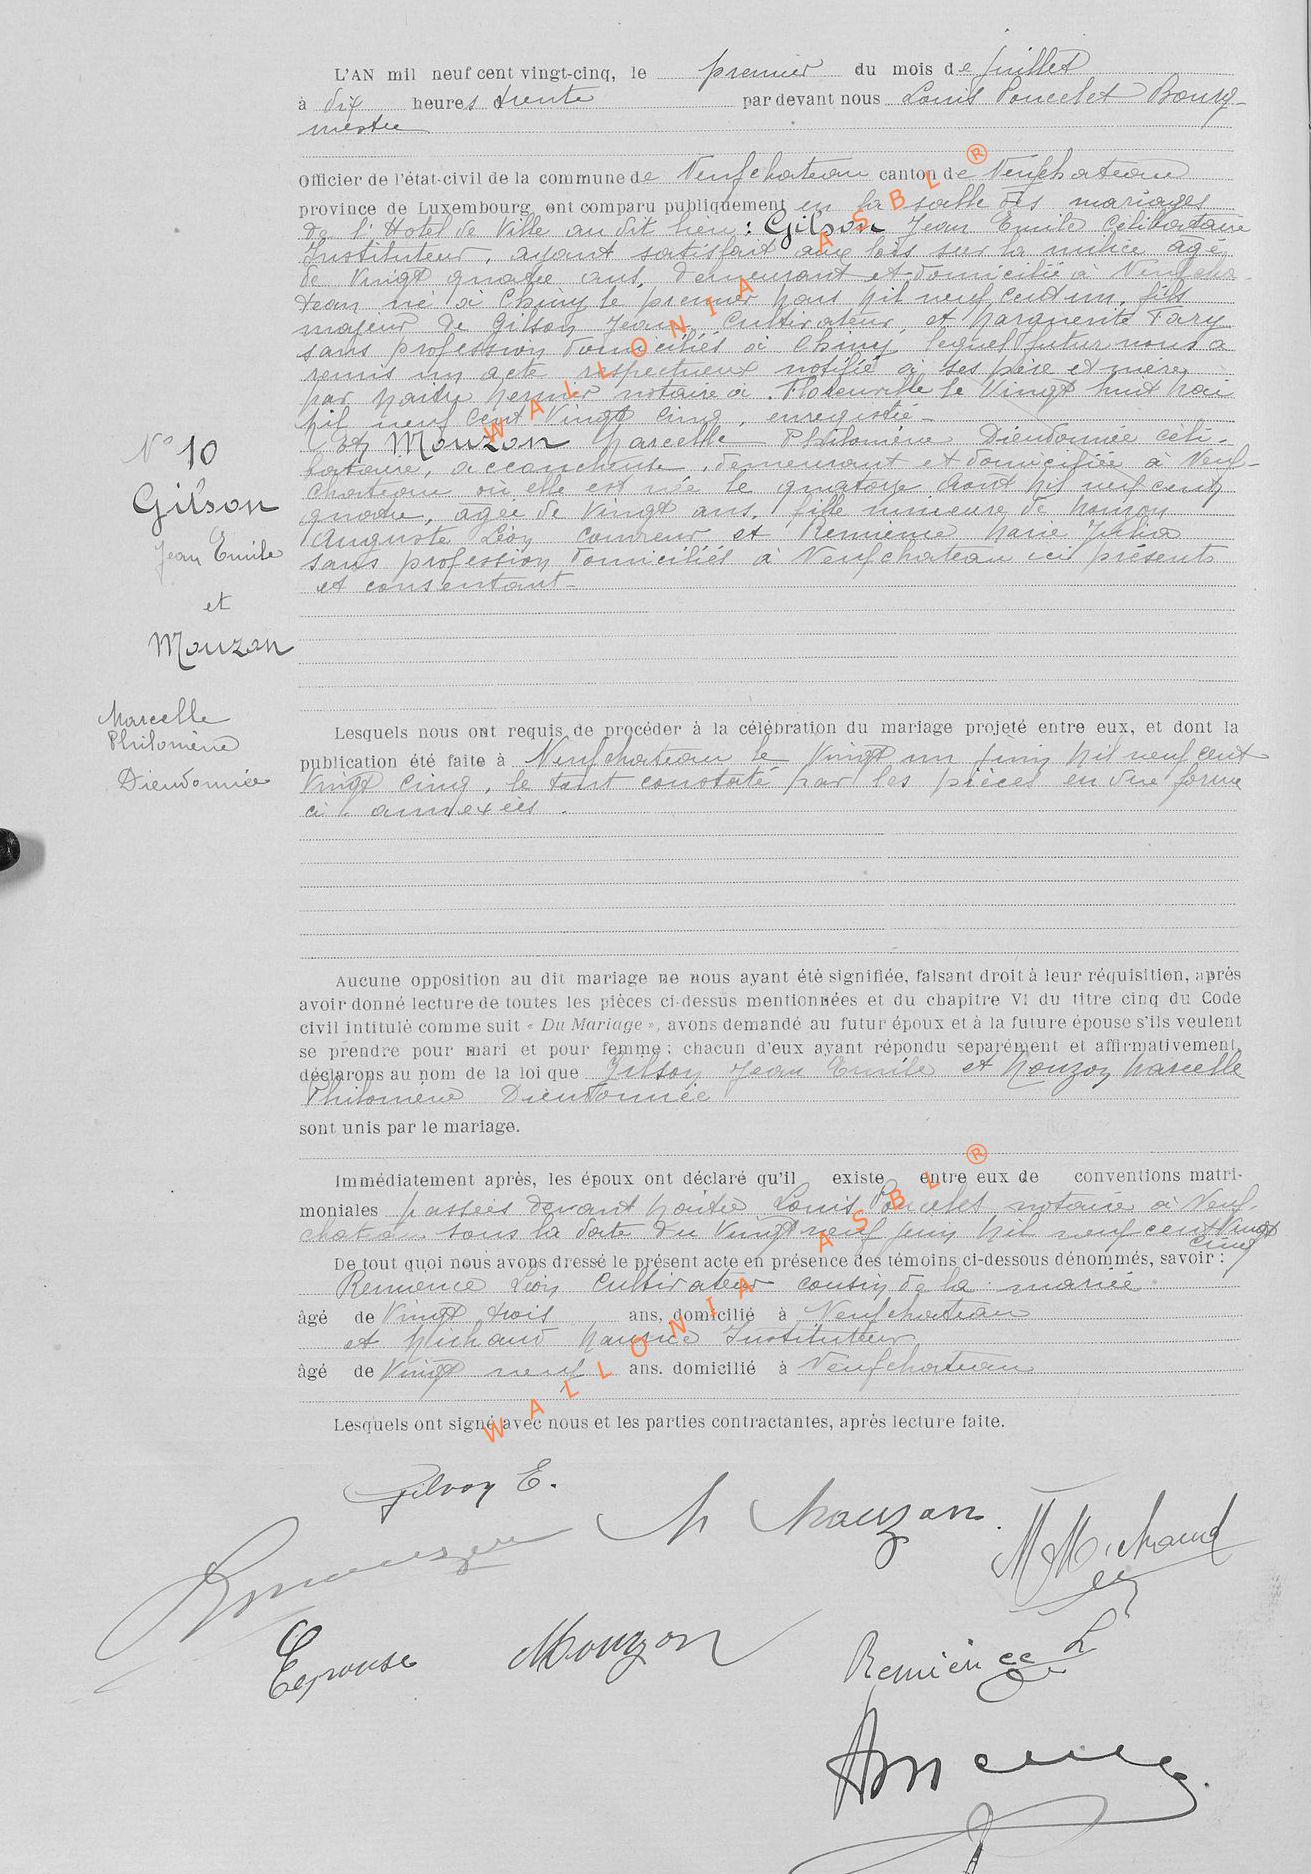 L'AN mil neuf cent vingt-cinq, le premier du mois de juillet
à dix heures trente par devant nous Louis Poncelet Bourg-
mestre
Officier de l'état-civil de la commune de Neufchateau canton de Neufchateau
province de Luxembourg, ont comparu publiquement en la salle des mariages
de l'Hotel de Ville au dit lieu : Gilson Jean Emile Célibataire
Instituteur, ayant satisfait aux lois sur la milice, agé
de vingt quatre ans, demeurant et domicilié à Neufcha-
teau né à Chiny le premier Mars Mil neuf cent un, fils
majeur de Gilson Jean, Cultivateur, et Marguerite Tary
sans profession domiciliés à Chiny, lequel futur nous a
remis un acte respectueux notifié à ses père et mère
par Maitre notaire à Florenville le Vingt huit Mai
Mil neuf cent Vingt cinq, enregistré
Et Mouzon Marcelle Philomène Dieudonnée céli-
bataire, accoucheuse, demeurant et domiciliée à Neuf-
chateau où elle est née le quatorze Aout Mil neuf cent
quatre, agée de Vingt ans, fille mineure de Mouzon
Auguste Léon couvreur et Remience Marie Julia
sans profession domiciliés à Neufchateau ici présents
et consentant-
N° 10
Gilson
Jean Emile
et
Mouzon
Marcelle
Philomène
Dieudonnée
Lesquels nous ont requis de procéder à la célébration du mariage projeté entre eux, et dont la
publication été faite à Neufchateau le Vingt un Juin Mil neuf cent
Vingt cinq, le tout constaté par les pièces en due forme
ci annexées.
Aucune opposition au dit mariage ne nous ayant été signifiée, faisant droit à leur réquisition, après
avoir donné lecture de toutes les pièces ci-dessus mentionnées et du chapitre VI du titre cinq du Code
civil intitulé comme suit « Du Mariage », avons demandé au futur époux et à la future épouse s'ils veulent
se prendre pour mari et pour femme ; chacun d'eux ayant répondu séparément et affirmativement,
déclarons au nom de la loi que Gilson Jean Emile et Mouzon Marcelle
Philomène Dieudonnée
sont unis par le mariage.
Immédiatement après, les époux ont déclaré qu'il existe entre eux de conventions matri-
moniales passées devant Maitre Louis Poncelet notaire à Neuf-
chateau sous la date du Vingt neuf Juin Mil neuf cent Vingt
cinq
De tout quoi nous avons dressé le présent acte en présence des témoins ci-dessous dénommés, savoir :
Remience Léon Cultivateur cousin de la mariée
âgé de Vingt trois ans, domicilié à Neufchateau
et Michaud Maurice Instituteur
âgé de Vingt neuf ans. domicilié à Neufchateau
Lesquels ont signé avec nous et les parties contractantes, après lecture faite.
Gilson E.
M Mouzon.
M Michaud
Epouse Mouzon
Remience L
WALLONIA ASBL ®
WALLONIA ASBL ®